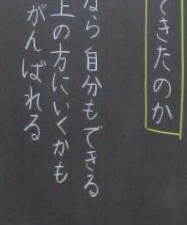 できたのか
なら自分もできる
上の方にいくかも
がんばれる